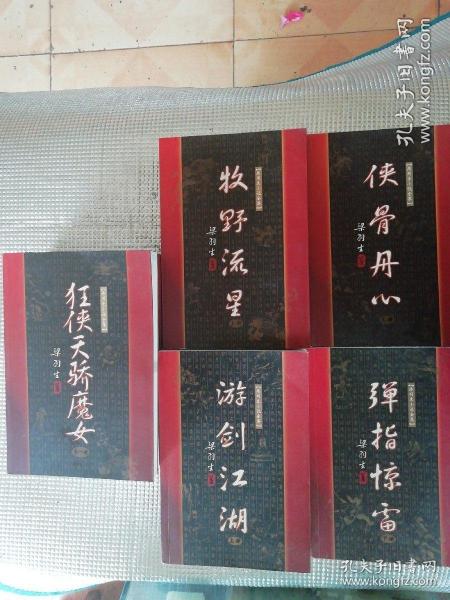 孔夫子旧书网
www.kongfz.com
牧野流星
梁羽生
侠骨丹心
梁羽生
狂侠天骄魔女
梁羽生
游剑江湖
梁羽生
弹指惊雷
梁羽生
孔夫子旧书网
www.kongfz.com